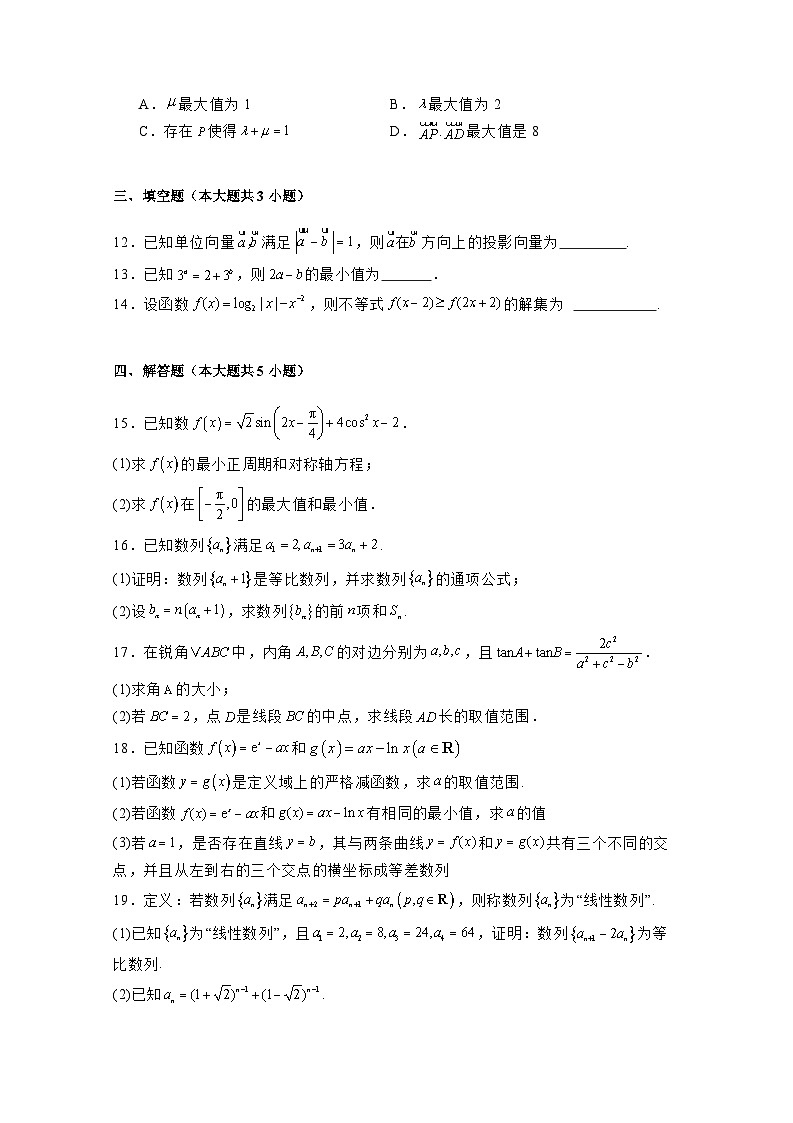 A．μ最大值为 1　B．λ最大值为 2
C．存在 P 使得 λ + μ = 1　D．AP·AD 最大值是 8
三、填空题（本大题共 3 小题）
12．已知单位向量 a,b 满足 |a − b| = 1，则 a 在 b 方向上的投影向量为________.
13．已知 3^a = 2 + 3^b，则 2a − b 的最小值为______．
14．设函数 f(x) = log₂ | x | − x⁻²，则不等式 f(x − 2) ≥ f(2x + 2) 的解集为 __________.
四、解答题（本大题共 5 小题）
15．已知数 f(x) = √2 sin(2x − π/4) + 4cos² x − 2．
(1)求 f(x) 的最小正周期和对称轴方程；
(2)求 f(x) 在 [−π/2, 0] 的最大值和最小值．
16．已知数列{aₙ}满足 a₁ = 2, aₙ₊₁ = 3aₙ + 2．
(1)证明：数列{aₙ + 1}是等比数列，并求数列{aₙ}的通项公式；
(2)设 bₙ = n(aₙ + 1)，求数列{bₙ}的前 n 项和 Sₙ．
17．在锐角∨ABC 中，内角 A, B, C 的对边分别为 a, b, c，且 tanA + tanB = 2c²/(a² + c² − b²)．
(1)求角 A 的大小；
(2)若 BC = 2，点 D 是线段 BC 的中点，求线段 AD 长的取值范围．
18．已知函数 f(x) = eˣ − ax 和 g(x) = ax − ln x (a ∈ R)
(1)若函数 y = g(x) 是定义域上的严格减函数，求 a 的取值范围.
(2)若函数 f(x) = eˣ − ax 和 g(x) = ax − ln x 有相同的最小值，求 a 的值
(3)若 a = 1，是否存在直线 y = b，其与两条曲线 y = f(x) 和 y = g(x) 共有三个不同的交
点，并且从左到右的三个交点的横坐标成等差数列
19．定义：若数列{aₙ}满足 aₙ₊₂ = paₙ₊₁ + qaₙ (p, q ∈ R)，则称数列{aₙ}为“线性数列”.
(1)已知{aₙ}为“线性数列”，且 a₁ = 2, a₂ = 8, a₃ = 24, a₄ = 64，证明：数列{aₙ₊₁ − 2aₙ}为等
比数列.
(2)已知 aₙ = (1 + √2)ⁿ⁻¹ + (1 − √2)ⁿ⁻¹．